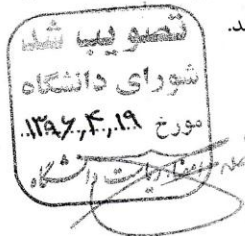 د.
تصویب شد
شورای دانشگاه
مورخ ۱۳۹۶,۴,۱۹
ریاست دانشگاه